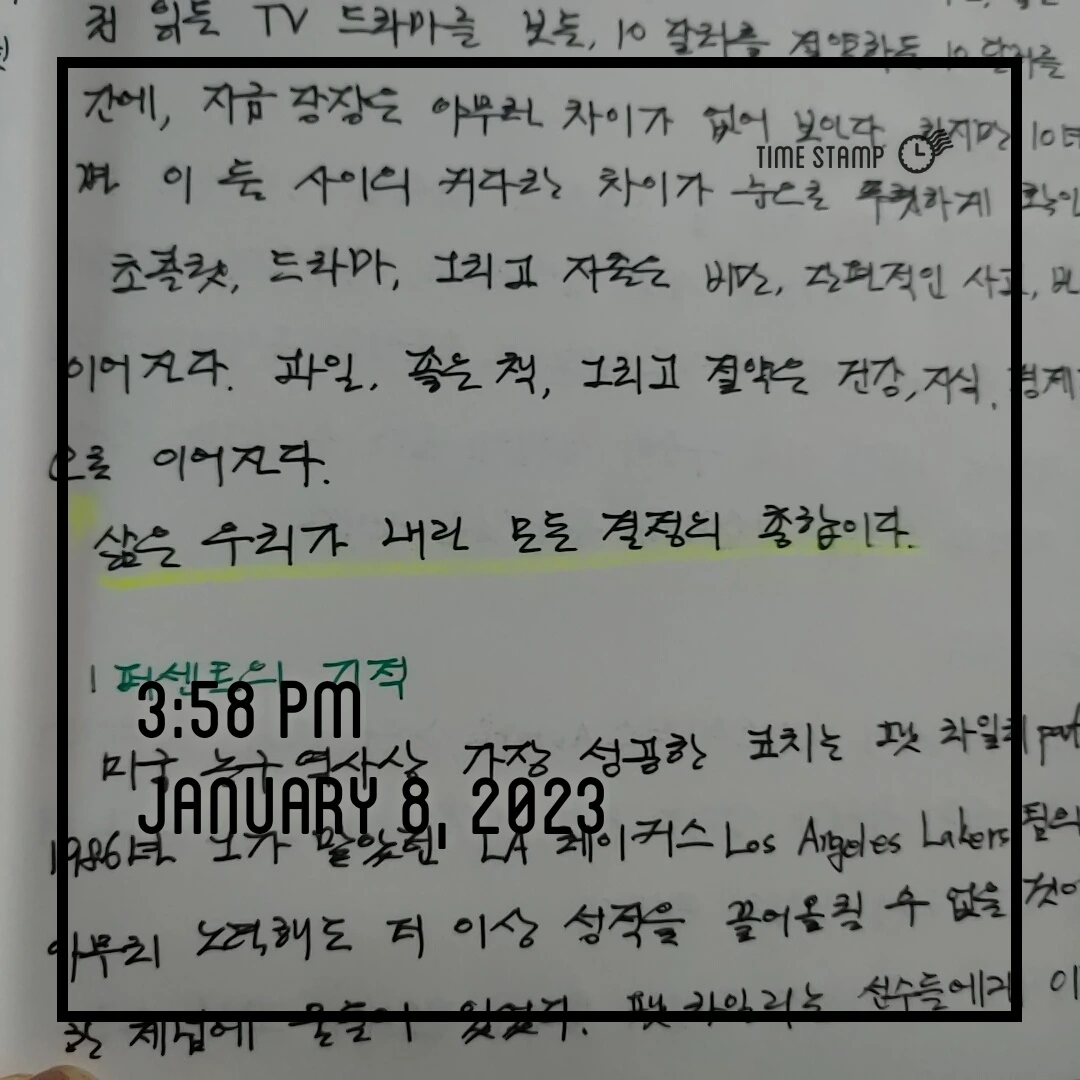 읽든 TV 드라마를 보든, 10 달러를 절약하든 10 달러를
간에, 지금 당장은 아무런 차이가 없어 보인다. 하지만 10년
TIME STAMP
이 둘 사이의 커다란 차이가 눈으로 뚜렷하게 확인
초콜릿, 드라마, 그리고 지출은 비만, 단편적인 사고, 빈
이어진다. 과일, 좋은 책, 그리고 절약은 건강, 지식, 경제
으로 이어진다.
삶은 우리가 내린 모든 결정의 총합이다.
1 퍼센트의 기적
3:58 PM
미국 농구 역사상 가장 성공한 코치는 팻 라일리 pat
JANUARY 8, 2023
1986년 그가 맡았던 LA 레이커스 Los Angeles Lakers 팀의
아무리 노력해도 더 이상 성적을 끌어올릴 수 없을 것이
체념에 물들어 있었다. 팻 라일리는 선수들에게 이